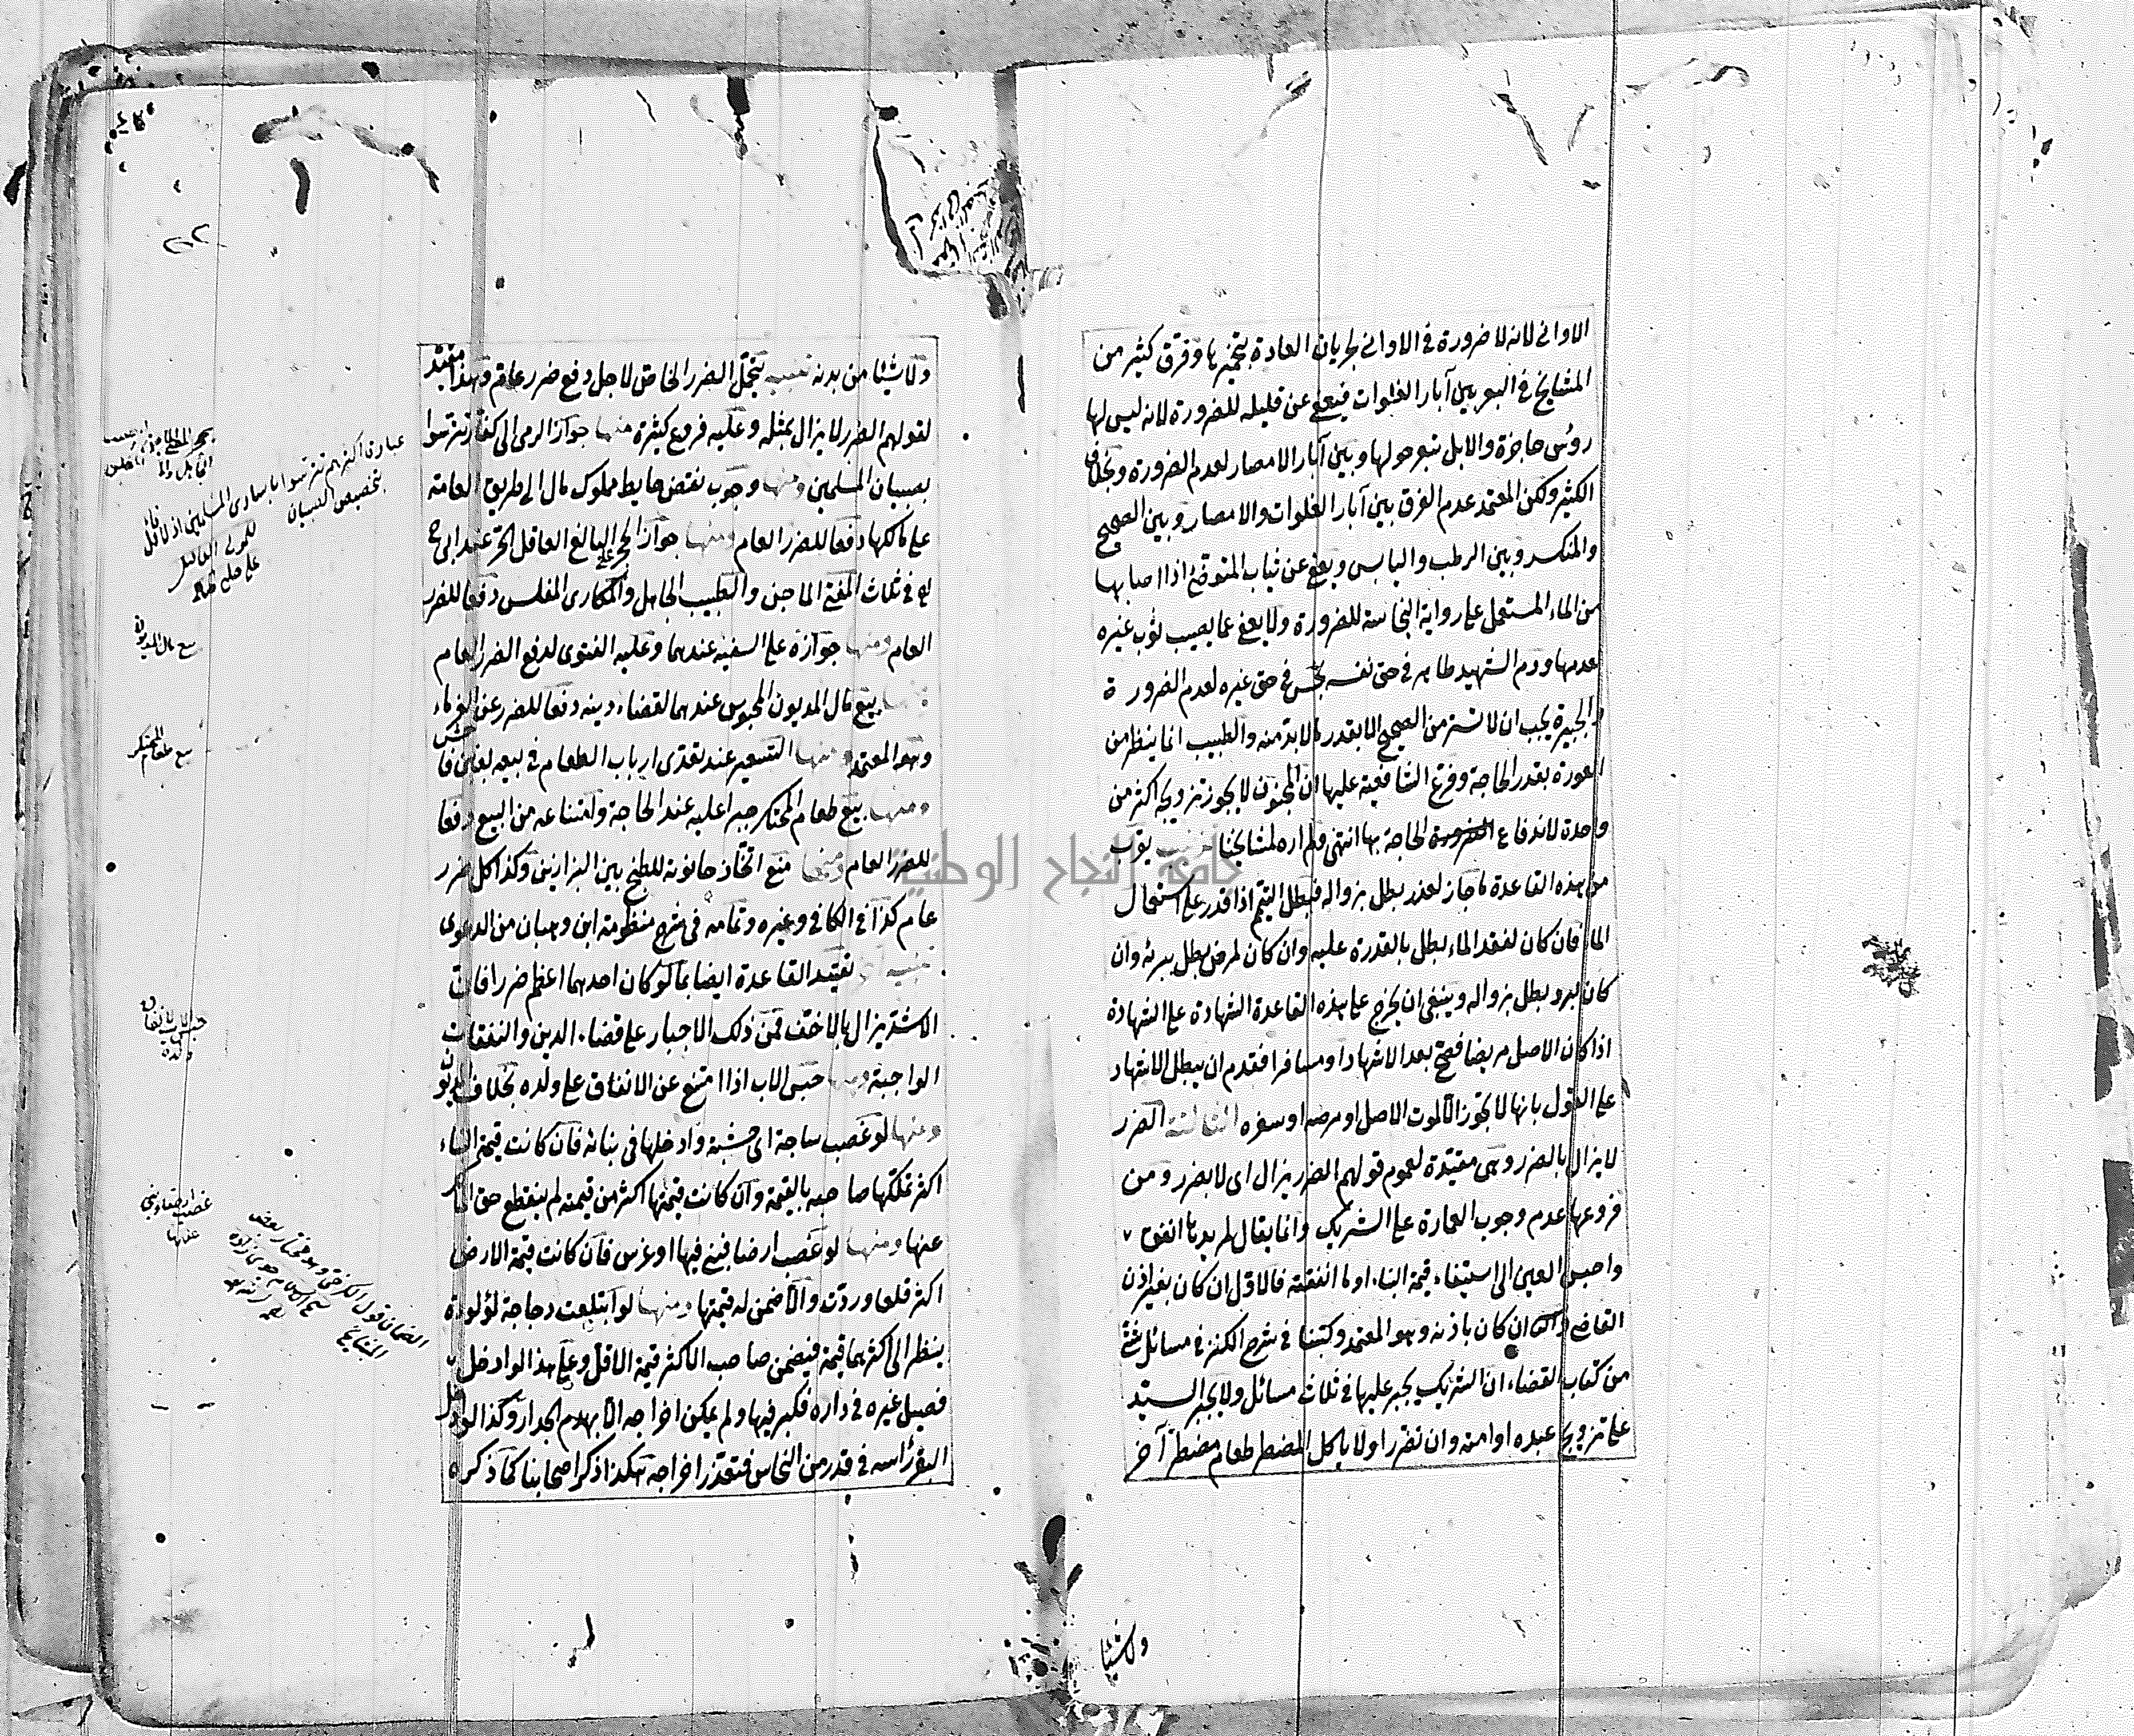 الاوانى لانه لا ضرورة فى الاوانى لجريان العادة بتخميرها وفرق كثير من
المشايخ فى البعر بين آبار الفلوات فيعفى عن قليله للضرورة لانه ليس لها
رؤس حاجزة والابل تبعر حولها وبين آبار الامصار لعدم الضرورة وبخلاف
الكثير ولكن المعتمد عدم الفرق بين آبار الفلوات والامصار وبين الصحيح
والمنكسر وبين الرطب واليابس ويعفى عن ثياب المتوضئ اذا اصابها
من الماء المستعمل على رواية النجاسة للضرورة ولا يعفى عما يصيب ثوب غيره
لعدمها ودم الشهيد طاهر فى حق نفسه نجس فى حق غيره لعدم الضرورة
والجبيرة يجب ان لا تستر من الصحيح الا بقدر ما لا بد منه والطبيب انما ينظر من
العورة بقدر الحاجة وفرع الشافعية عليها ان المجنون لا يجوز تزويجه اكثر من
واحدة لاندفاع الحاجة بها انتهى ولم اره لمشايخنا تذنيب يقرب
من هذه القاعدة ما جاز لعذر بطل بزواله فبطل التيمم اذا قدر على استعمال
الماء فان كان لفقد الماء بطل بالقدرة عليه وان كان لمرض بطل ببرئه وان
كان لبرد بطل بزواله وينبغى ان يخرج على هذه القاعدة الشهادة على الشهادة
اذا كان الاصل مريضا فصح بعد الاشهاد او مسافرا فقدم ان يبطل الاشهاد
على القول بانها لا تجوز الا لموت الاصل او مرضه او سفره الثالثة الضرر
لا يزال بالضرر وهى مقيدة لعموم قولهم الضرر يزال اى لا بضرر ومن
فروعها عدم وجوب العمارة على الشريك وانما يقال لمريدها انفق
واحبس العين الى استيفاء قيمة البناء او ما انفقته فالاول ان كان بغير اذن
القاضى والثانى ان كان باذنه وهو المعتمد وكتبنا فى شرح الكنز فى مسائل شتى
من كتاب القضاء ان الشريك يجبر عليها فى ثلاث مسائل ولا يجبر السيد
على تزويج عبده او امته وان تضررا ولا ياكل المضطر طعام مضطر آخر
ولا شيئا
ولا شيئا من بدنه تنبيه يتحمل الضرر الخاص لاجل دفع ضرر عام وهذا مقيد
لقولهم الضرر لا يزال بمثله وعليه فروع كثيرة منها جواز الرمى الى كفار تترسوا
بصبيان المسلمين ومنها وجوب نقض حايط مملوك مال الى طريق العامة
على مالكها دفعا للضرر العام ومنها جواز الحجر على البالغ العاقل الحر عند ابى ح
فى ثلاث المفتى الماجن والطبيب الجاهل والمكارى المفلس دفعا للضرر
العام ومنها جوازه على السفيه عندهما وعليه الفتوى لدفع الضرر العام
ومنها بيع مال المديون المحبوس عندهما لقضاء دينه دفعا للضرر عن الغرماء
وهو المعتمد ومنها التسعير عند تعدى ارباب الطعام فى بيعه بغبن فاحش
ومنها بيع طعام المحتكر جبرا عليه عند الحاجة وامتناعه من البيع دفعا
للضرر العام ومنها منع اتخاذ حانوته للطبخ بين البزازين وكذا كل ضرر
عام كذا فى الكافى وغيره وتمامه فى شرح منظومة ابن وهبان من الدعوى
تنبيه آخر تقييد القاعدة ايضا بما لو كان احدهما اعظم ضررا فان
الاشد يزال بالاخف فمن ذلك الاجبار على قضاء الدين والنفقات
الواجبة ومنها حبس الاب اذا امتنع عن الانفاق على ولده بخلاف الديون
ومنها لو غصب ساجة اى خشبة وادخلها فى بنائه فان كانت قيمة البناء
اكثر تملكها صاحبه بالقيمة وان كانت قيمتها اكثر من قيمته لم ينقطع حق المالك
عنها ومنها لو غصب ارضا فبنى فيها او غرس فان كانت قيمة الارض
اكثر قلعها وردت والا ضمن له قيمتها ومنها لو ابتلعت دجاجة لؤلؤة
ينظر الى اكثرهما قيمة فيضمن صاحب الاكثر قيمة الاقل وعلى هذا لو ادخل
فصيل غيره فى داره فكبر فيها ولم يمكن اخراجه الا بهدم الجدار وكذا لو ادخل
البقر رأسه فى قدر من النحاس فتعذر اخراجه هكذا ذكر اصحابنا كما ذكره
عبارة اكثرهم تترسوا باسارى المسلمين
بتخصيص الصبيان
بيع مال المديون
بيع طعام المحتكر
حبس الاب لانفاق
ولده
الضمان قول الكرخى
جامعة النجاح الوطنية